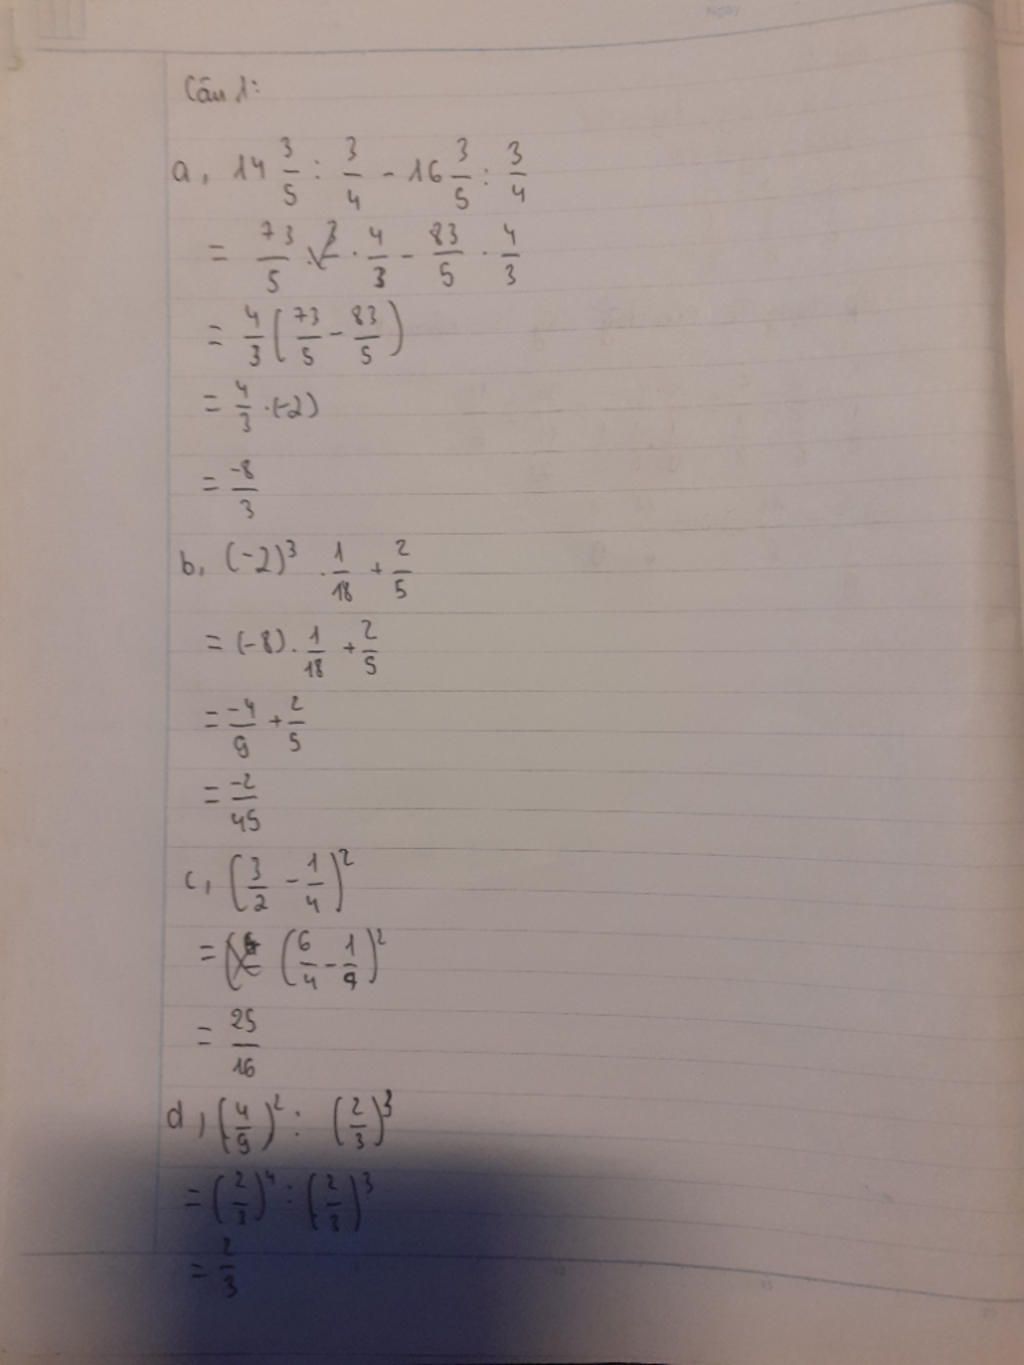 Câu 1:
a, 14 3/5 : 3/4 - 16 3/5 : 3/4
= 73/5 . 4/3 - 83/5 . 4/3
= 4/3 (73/5 - 83/5)
= 4/3 . (-2)
= -8/3
b, (-2)³ . 1/18 + 2/5
= (-8) . 1/18 + 2/5
= -4/9 + 2/5
= -2/45
c, (3/2 - 1/4)²
= (6/4 - 1/4)²
= 25/16
d, (4/9)² : (2/3)³
= (2/3)⁴ : (2/3)³
= 2/3